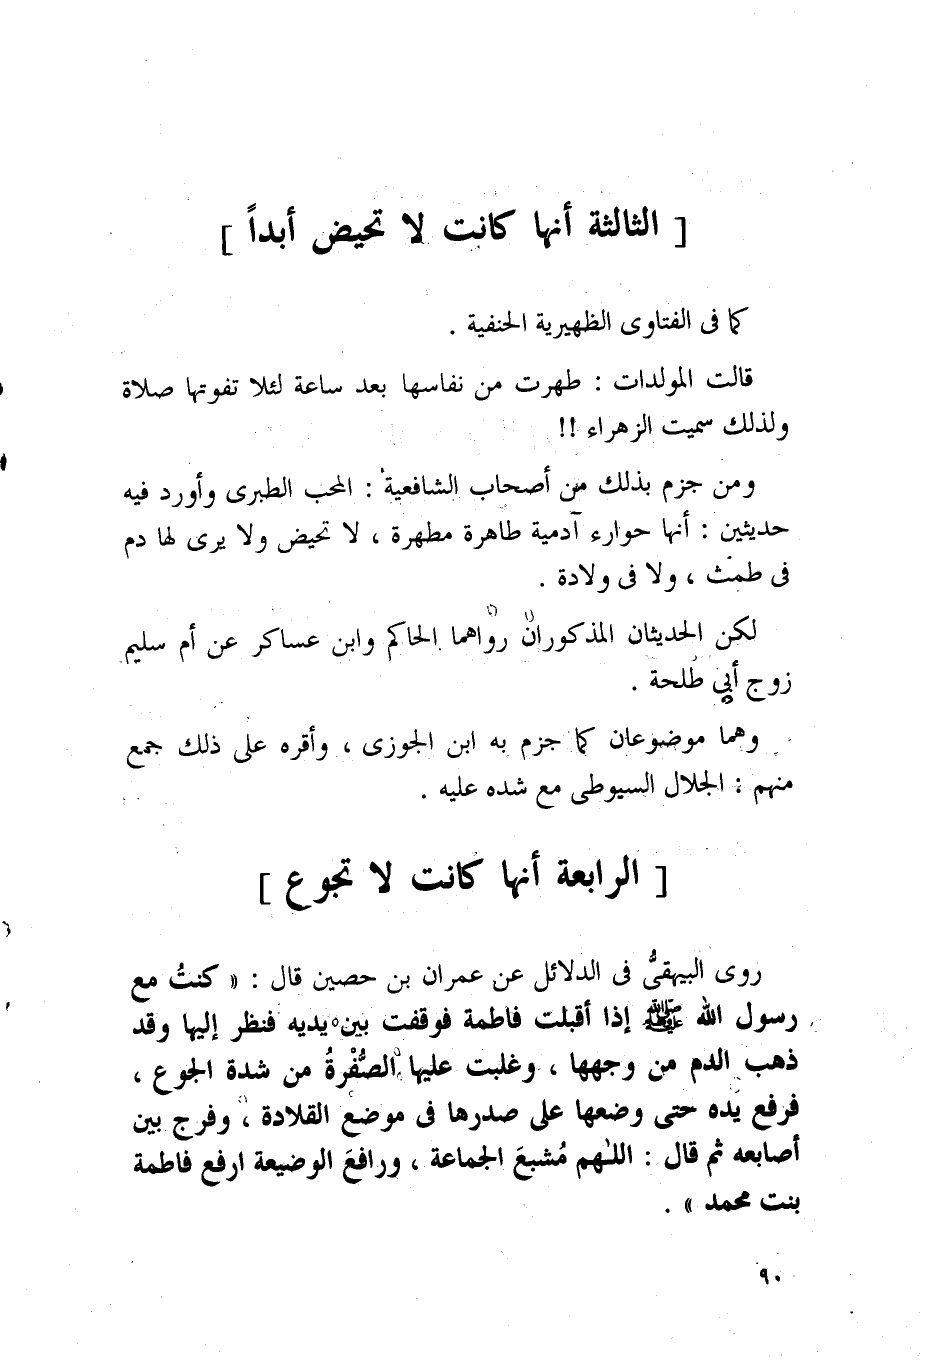 [ الثالثة أنها كانت لا تحيض أبداً ]
كما فى الفتاوى الظهيرية الحنفية .
قالت المولدات : طهرت من نفاسها بعد ساعة لئلا تفوتها صلاة
ولذلك سميت الزهراء !!
ومن جزم بذلك من أصحاب الشافعية : المحب الطبرى وأورد فيه
حديثين : أنها حوارء آدمية طاهرة مطهرة ، لا تحيض ولا يرى لها دم
فى طمث ، ولا فى ولادة .
لكن الحديثان المذكوران رواهما الحاكم وابن عساكر عن أم سليم
زوج أبي طلحة .
وهما موضوعان كما جزم به ابن الجوزى ، وأقره على ذلك جمع
منهم : الجلال السيوطى مع شده عليه .
[ الرابعة أنها كانت لا تجوع ]
روى البيهقىُّ فى الدلائل عن عمران بن حصين قال : « كنتُ مع
رسول الله ﷺ إذا أقبلت فاطمة فوقفت بين يديه فنظر إليها وقد
ذهب الدم من وجهها ، وغلبت عليها الصُّفْرةُ من شدة الجوع ،
فرفع يده حتى وضعها على صدرها فى موضع القلادة ، وفرج بين
أصابعه ثم قال : اللهم مُشبعَ الجماعة ، ورافعَ الوضيعة ارفع فاطمة
بنت محمد » .
٩٠